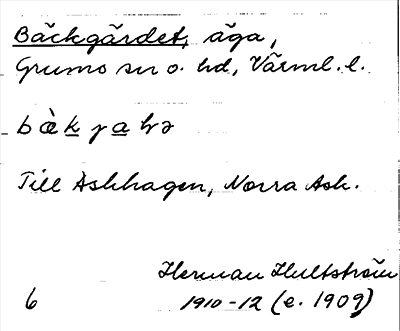 Bäckgärdet, äga,
Grums sn o. hd, Värml. l.
Till Åshhagen, Norra Ash.
Herman Hultström
6 1910-12 (e. 1909)